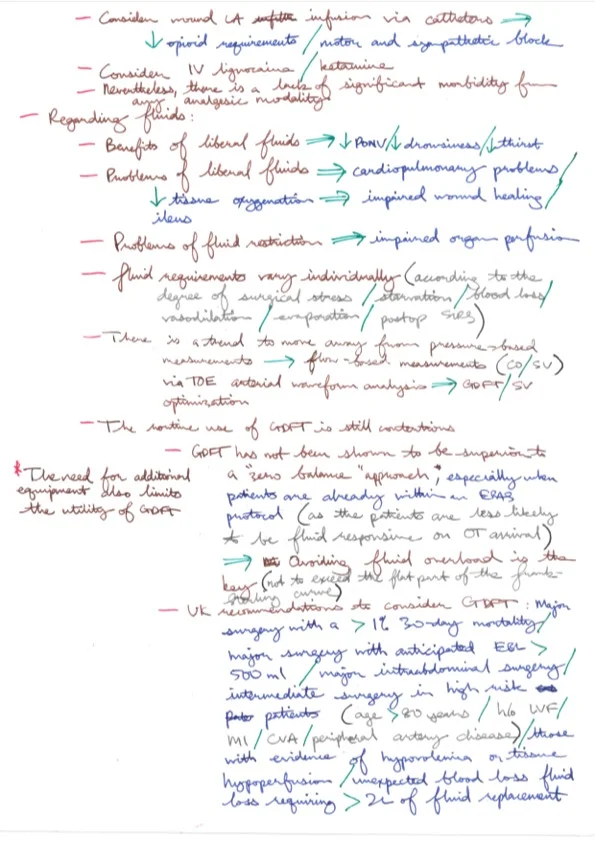 — Consider wound LA infusion via catheters →
↓ opioid requirements / motor and sympathetic block
— Consider IV lignocaine / ketamine
— Nevertheless, there is a lack of significant morbidity from
any analgesic modality
— Regarding fluids:
— Benefits of liberal fluids ⇒ ↓PONV/↓drowsiness/↓thirst
— Problems of liberal fluids ⇒ cardiopulmonary problems/
↓ tissue oxygenation ⇒ impaired wound healing/
ileus
— Problems of fluid restriction ⇒ impaired organ perfusion
— Fluid requirements vary individually (according to the
degree of surgical stress / starvation / blood loss/
vasodilation / evaporation / postop SIRS)
— There is a trend to move away from pressure-based
measurements → flow-based measurements (CO/SV)
via TOE arterial waveform analysis → GDFT/SV
optimization
— The routine use of GDFT is still contentious
— GDFT has not been shown to be superior to
a "zero balance" approach*, especially when
patients are already within an ERAS
protocol (as the patients are less likely
to be fluid responsive on OT arrival)
⇒ Avoiding fluid overload is the
key (not to exceed the flat part of the frank-
starling curve)
* The need for additional
equipment also limits
the utility of GDFT
— UK recommendations to consider GDFT: Major
surgery with a >1% 30-day mortality/
major surgery with anticipated EBL >
500 ml / major intraabdominal surgery/
intermediate surgery in high risk
patients (age >80 years / h/o LVF/
MI/CVA/peripheral artery disease)/those
with evidence of hypovolemia or tissue
hypoperfusion / unexpected blood loss fluid
loss requiring >2L of fluid replacement